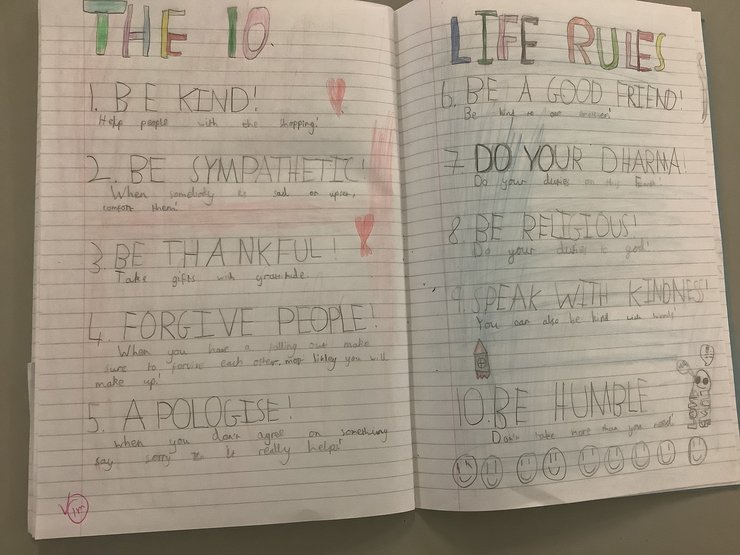 THE 10
1. BE KIND!
Help people with the shopping!
2. BE SYMPATHETIC!
When somebody is sad or upset,
comfort them!
3. BE THANKFUL!
Take gifts with gratitude.
4. FORGIVE PEOPLE!
When you have a falling out make
sure to forgive each other. most likley you will
make up!
5. APOLOGISE!
When you don't agree on something
say sorry It really helps!
LIFE RULES
6. BE A GOOD FRIEND!
Be kind to one another!
7. DO YOUR DHARNA!
Do your duties on this Earth!
8. BE RELIGIOUS!
Do your duties to god!
9. SPEAK WITH KINDNESS!
You can also be kind with words!
10. BE HUMBLE
Don't take more than you need!